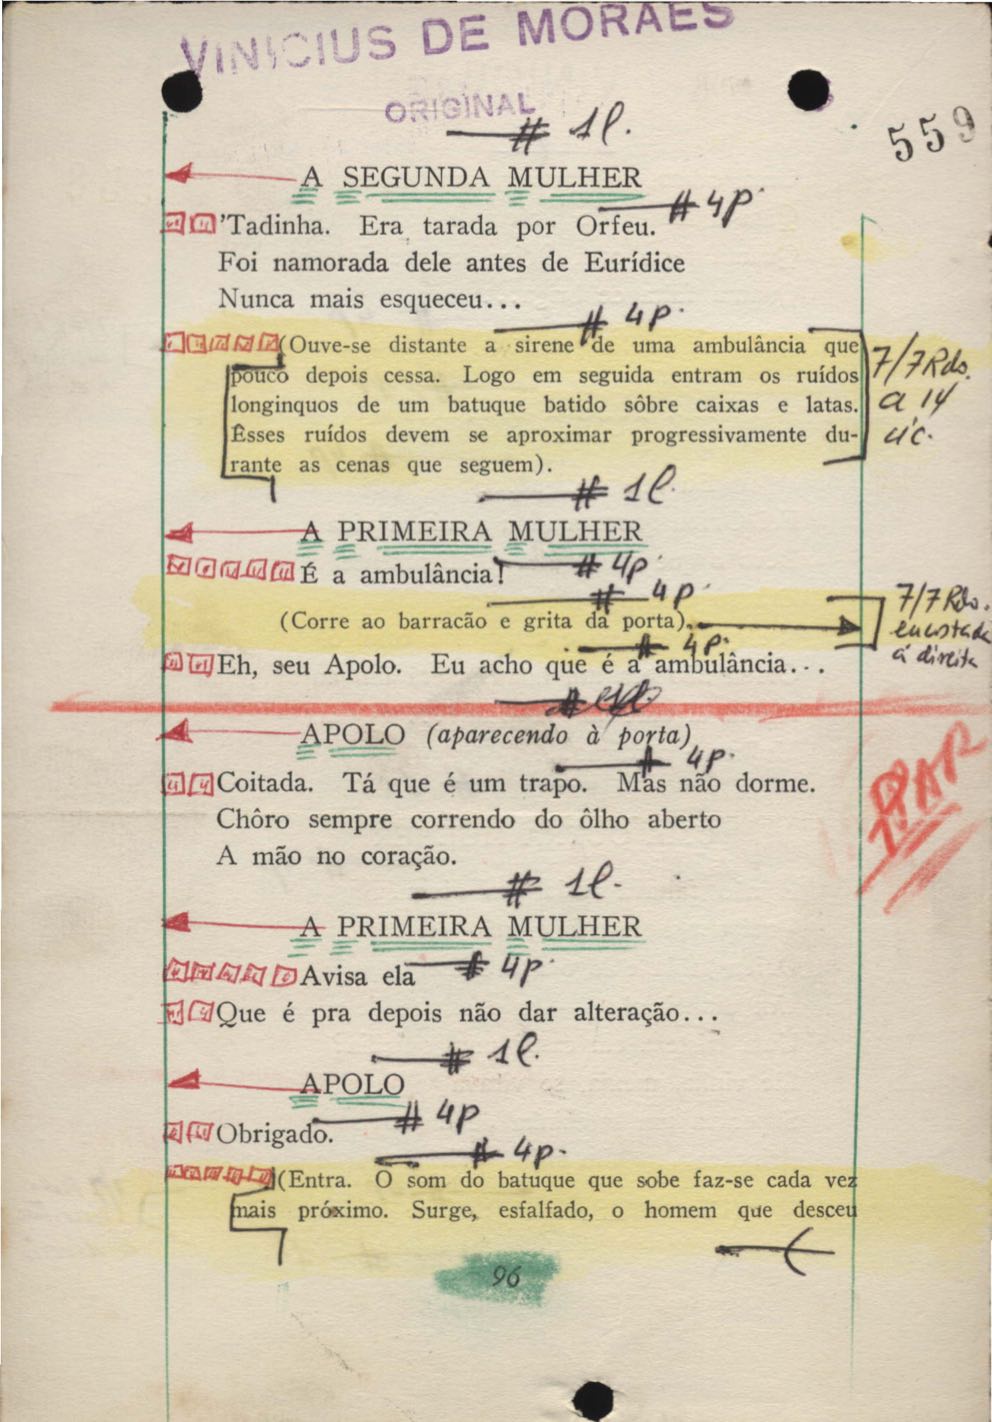 VINICIUS DE MORAES
ORIGINAL
# 1l.
559
A SEGUNDA MULHER
# 4p.
'Tadinha. Era tarada por Orfeu.
Foi namorada dele antes de Eurídice
Nunca mais esqueceu...
# 4p.
(Ouve-se distante a sirene de uma ambulância que
pouco depois cessa. Logo em seguida entram os ruídos
longinquos de um batuque batido sôbre caixas e latas.
Êsses ruídos devem se aproximar progressivamente du-
rante as cenas que seguem).
7/7 Rdo.
a 14
cíc.
# 1l.
A PRIMEIRA MULHER
# 4p.
É a ambulância!
# 4p.
(Corre ao barracão e grita da porta).
7/7 Rdo.
encostada
à direita
# 4p.
Eh, seu Apolo. Eu acho que é a ambulância...
APOLO (aparecendo à porta)
# 4p.
Coitada. Tá que é um trapo. Mas não dorme.
Chôro sempre correndo do ôlho aberto
A mão no coração.
PAR
# 1l.
A PRIMEIRA MULHER
Avisa ela # 4p.
Que é pra depois não dar alteração...
# 1l.
APOLO
# 4p
Obrigado.
# 4p.
(Entra. O som do batuque que sobe faz-se cada vez
mais próximo. Surge, esfalfado, o homem que desceu
96